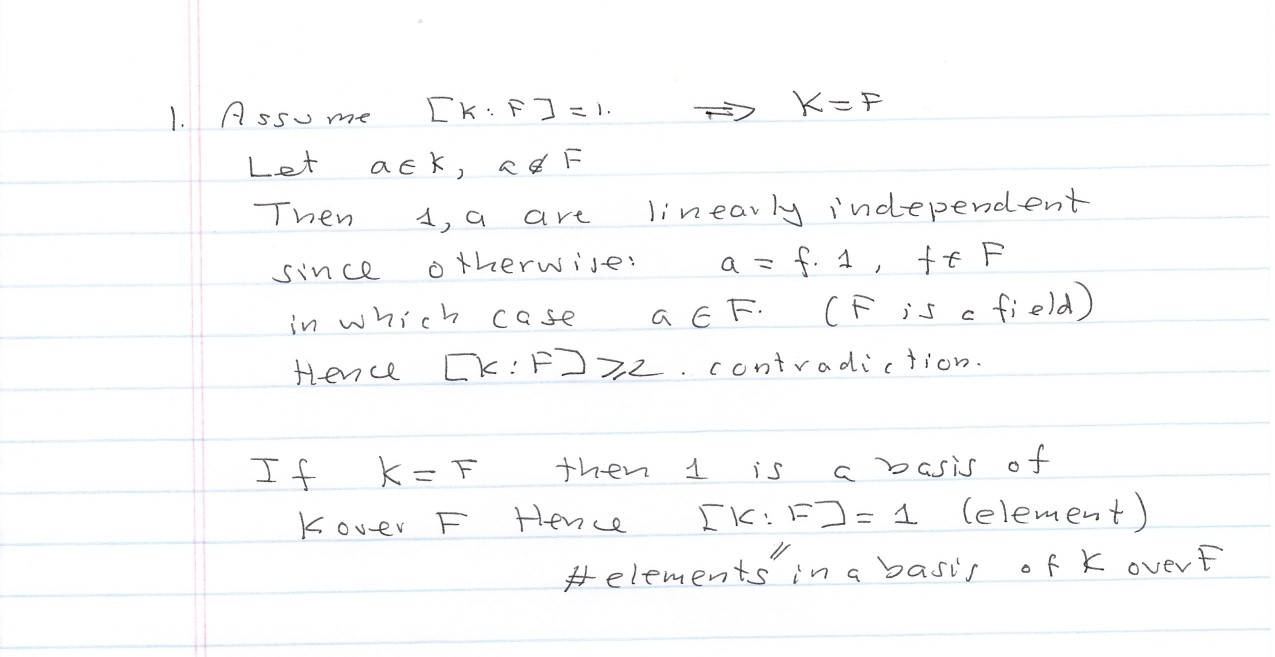 1. Assume [K:F]=1. ⇒ K=F
Let a∈K, a∉F
Then 1, a are linearly independent
since otherwise: a = f·1, f∈F
in which case a∈F. (F is a field)
Hence [K:F]≥2. contradiction.
If K=F then 1 is a basis of
K over F Hence [K:F]=1 (element)
"
# elements in a basis of K over F